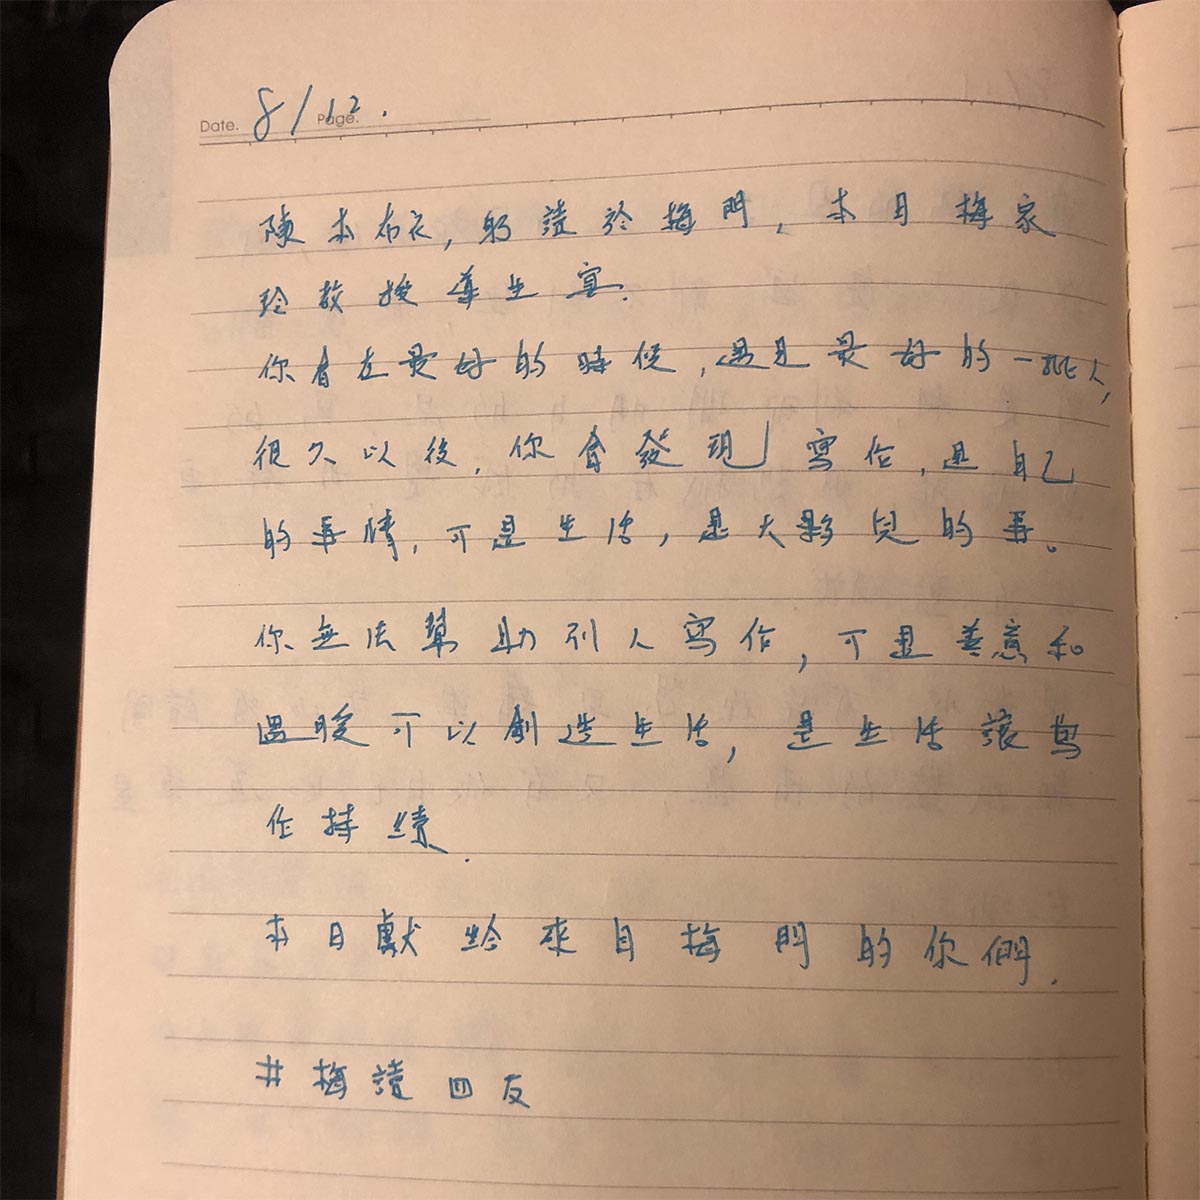 Date. 8/12. Page.
陳本布衣，躬讀於梅門，本日梅家
玲教授導生宴.
你會在最好的時候，遇見最好的一批人，
很久以後，你會發現寫作，是自己
的事情，可是生活，是大夥兒的事。
你無法幫助別人寫作，可是善意和
溫暖可以創造生活，是生活讓寫
作持續.
本日獻給來自梅門的你們.
#梅讀四友